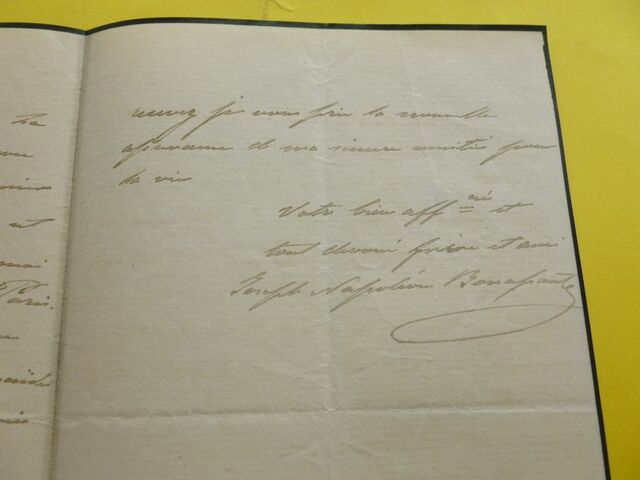 la
et
Paris.
recevez je vous prie la nouvelle
assurance de ma sincere amitié pour
la vie
Votre bien aff né et
tout devoué frère et ami
Joseph Napoléon Bonaparte